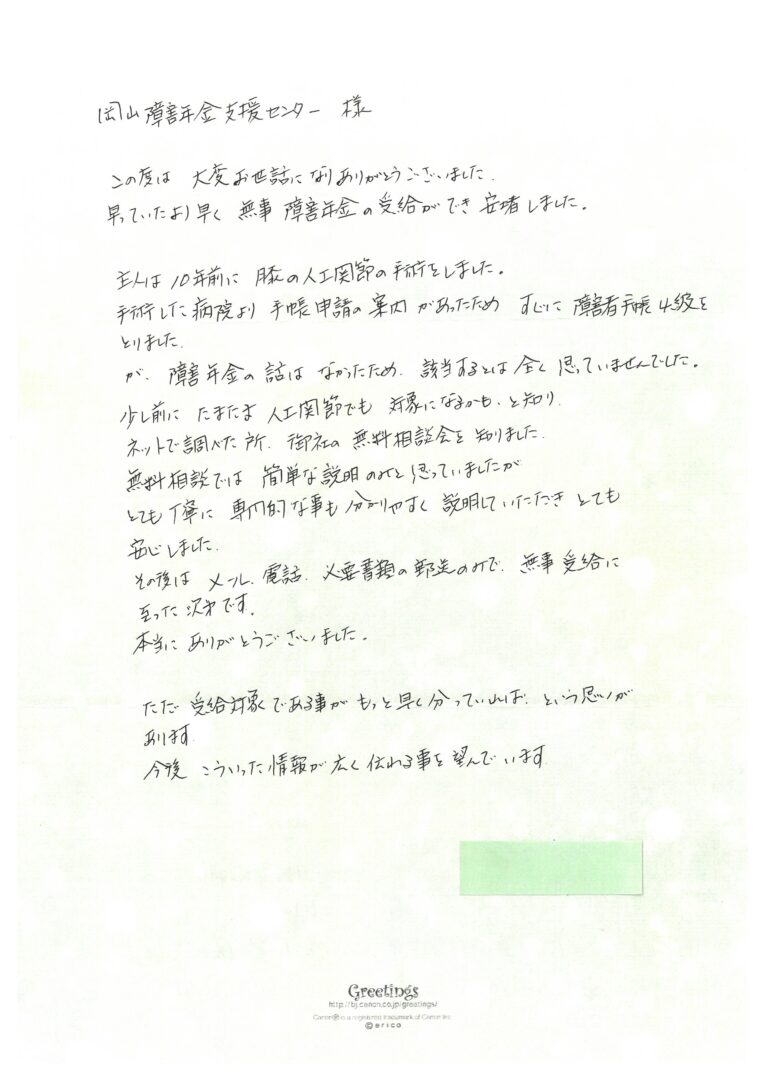 岡山障害年金支援センター 様
この度は 大変お世話になりありがとうございました.
早っていたより早く 無事 障害年金の受給ができ 安堵しました。
主人は10年前に 膝の人工関節の手術をしました。
手術した病院より 手帳申請の案内があったため すぐに 障害者手帳4級を
とりました.
が、障害年金の話は なかったため、該当するとは全く思っていませんでした。
少し前に たまたま 人工関節でも 対象になるかも、と知り、
ネットで調べた所、御社の無料相談会を知りました.
無料相談では 簡単な説明のみと思っていましたが
とても丁寧に 専門的な事も分かりやすく 説明していただき とても
安心しました.
その後は メール、電話、必要書類の郵送のみで、無事 受給に
至った次第です。
本当に ありがとうございました。
ただ 受給対象である事が もっと早く分っていれば、という思いが
あります.
今後 こういった情報が広く伝わる事を望んでいます
Greetings
http://bj.canon.co.jp/greetings/
Canon®is a registered trademark of Canon Inc.
©erico